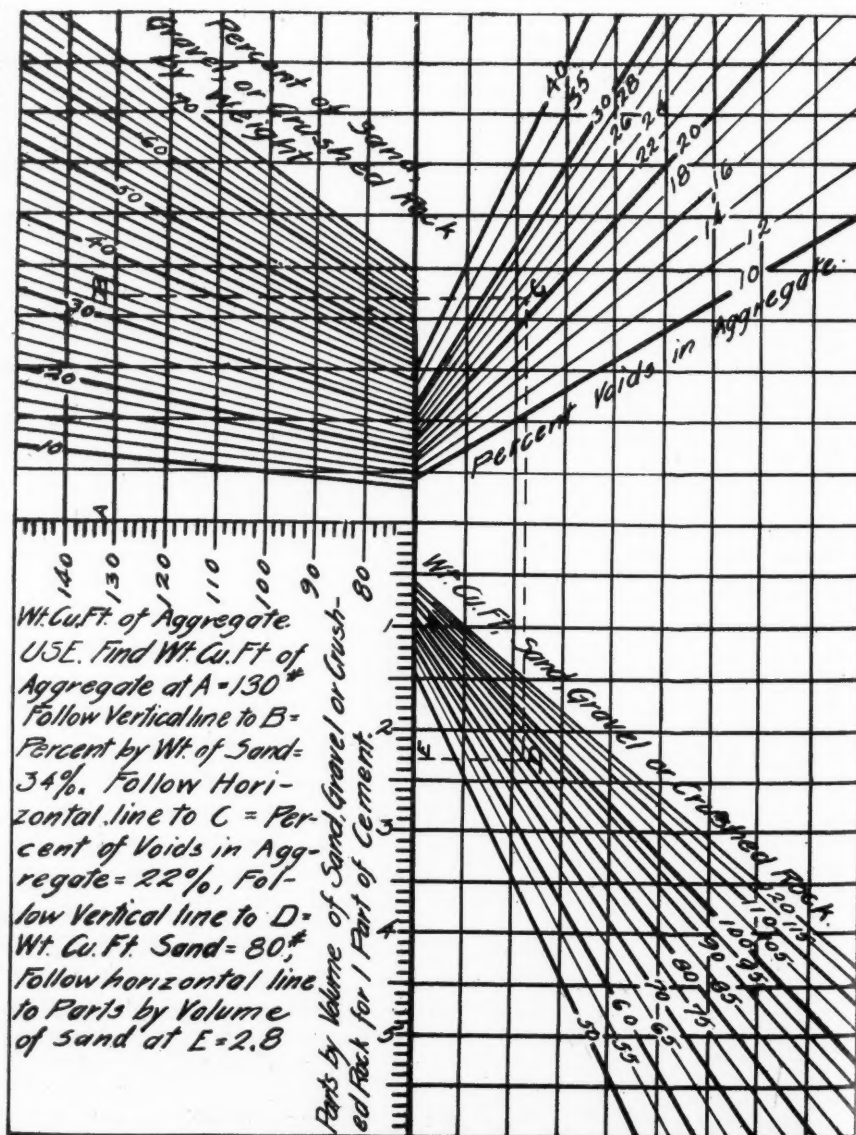 Percent of Sand,
Gravel or Crushed Rock
by Weight
70
60
50
40
30
20
10
B
A
40
35
30
28
26
24
22
20
18
16
14
12
10
C
Percent Voids in Aggregate.
140
130
120
110
90
80
Wt.Cu.Ft. of Aggregate.
USE. Find Wt. Cu. Ft of
Aggregate at A=130#
Follow Vertical line to B=
Percent by Wt. of Sand=
34%. Follow Hori-
zontal line to C = Per-
cent of Voids in Agg-
regate=22%, Fol-
low Vertical line to D=
Wt. Cu. Ft. Sand = 80,#
Follow horizontal line
to Parts by Volume
of Sand at E=2.8
Parts by Volume of Sand, Gravel or Crush-
ed Rock for 1 Part of Cement.
1
2
3
4
5
Wt. Cu. Ft. Sand, Gravel or Crushed Rock.
E
D
120
115
110
105
100
95
90
85
80
75
70
65
60
55
50